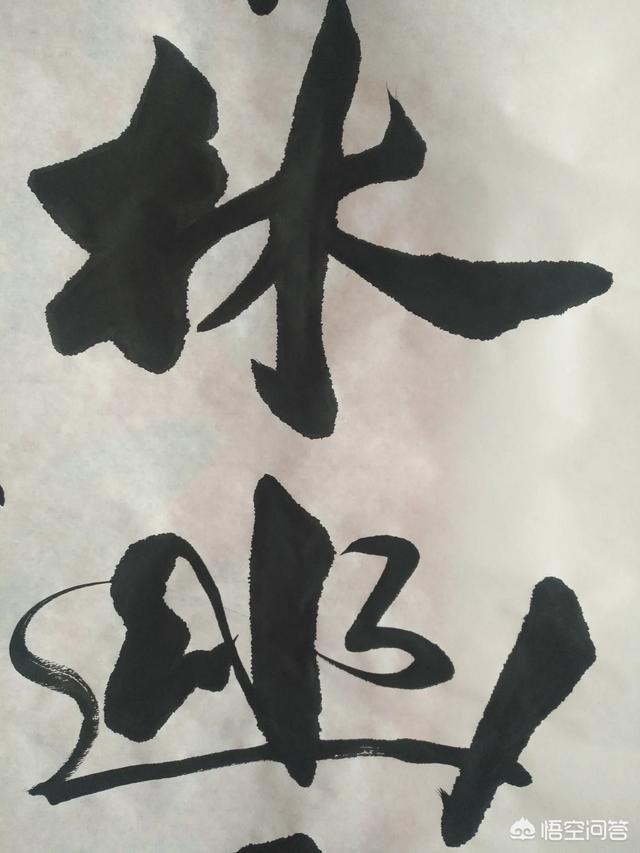 林
幽
悟空问答